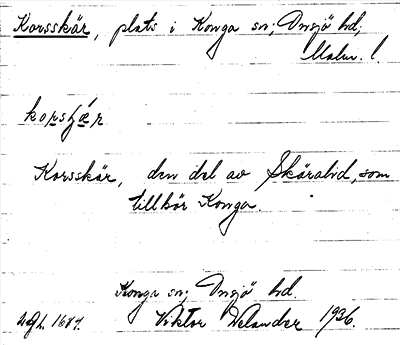 Korsskär, plats i Konga sn; Onsjö hd;
Malm. l.
korsʃæ̀r
Korsskär, den del av Skäralid, som
tillhör Konga.
Konga sn; Onsjö hd.
Viktor Welander 1936.